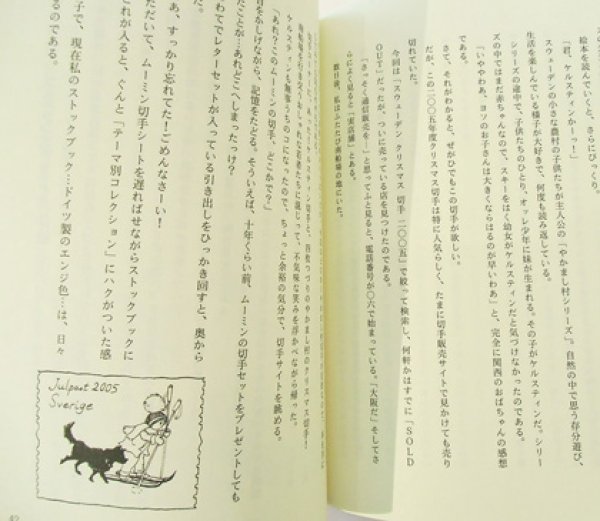 絵本を読んでいくと、さらにびっくり。
「君、ケルスティンかーっ！」
スウェーデンの小さな農村の子供たちが主人公の『やかまし村シリーズ』。自然の中で思う存分遊び、
生活を楽しんでいる様子が大好きで、何度も読み返している。
シリーズの途中で、子供たちのひとり、オッレ少年に妹が生まれる。その子がケルスティンだ。シリー
ズの中ではまだ赤ちゃんなので、スキーをはく幼女がケルスティンだと気づけなかったのである。
「いややわあ、ヨソのお子さんは大きくならはるのが早いわあ」と、完全に関西のおばちゃんの感想
である。
さて、それがわかると、ぜがひでもこの切手が欲しい。
だが、この二〇〇五年度クリスマス切手は特に人気らしく、たまに切手販売サイトで見かけても売り
切れていた。
今回は「スウェーデン クリスマス 切手 二〇〇五」で絞って検索し、何軒かはすでに「SOLD
OUT」だったが、ついに売っている店を見つけたのである。
「さっそく通信販売を―」と思ってふと見ると、電話番号が〇六で始まっている。「大阪だ」そしてさ
らによく見ると「実店舗」とある。
数日後、私はふたたび南船場の地にいた。
ケルスティンも無事うちのコになったので、ちょっと余裕の気分で、切手サイトを眺める。
「あれ？このムーミンの切手、どこかで？」
首をかしげながら、記憶をたどる。そういえば、十年くらい前、ムーミンの切手セットをプレゼントしても
たことが…あれどこへしまったっけ？
わててレターセットが入っている引き出しをひっかき回すと、奥から
だ。
あ、すっかり忘れてた！ごめんなさーい！
ただいて、ムーミン切手シートを遅ればせながらストックブックに
これが入ると、ぐんと「テーマ別コレクション」にハクがついた感
るのである。
子で、現在私のストックブック…ドイツ製のエンジ色…は、日々
Julpost 2005
Sverige